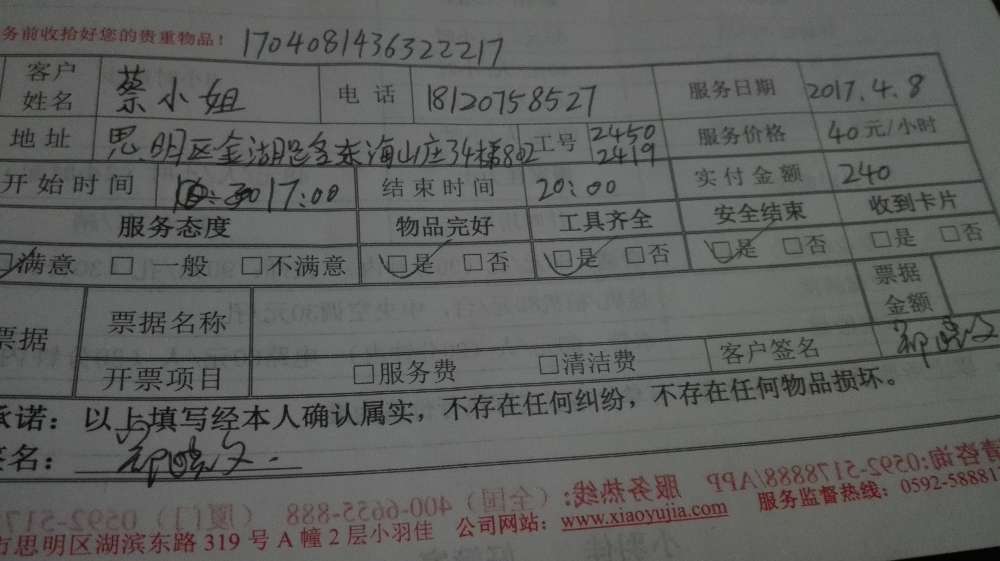 务前收拾好您的贵重物品！ 1704081436322217
客户姓名 蔡小姐 电话 18120758527 服务日期 2017.4.8
地址 思明区金湖路金东海山庄34栋802 工号 2450 2419 服务价格 40元/小时
开始时间 17:00 结束时间 20:00 实付金额 240
服务态度 物品完好 工具齐全 安全结束 收到卡片
☑满意 □ 一般 □不满意 ☑是 □否 ☑是 □否 ☑是 □否 □是 □否
票据 票据名称 票据金额
开票项目 □服务费 □清洁费 客户签名
承诺：以上填写经本人确认属实，不存在任何纠纷，不存在任何物品损坏。
签名：
请咨询:0592-5178888/APP 服务热线:（全国）400-6655-888 （厦门）0592-517
市思明区湖滨东路 319 号 A 幢 2 层小羽佳 公司网站：www.xiaoyujia.com 服务监督热线：0592-588817